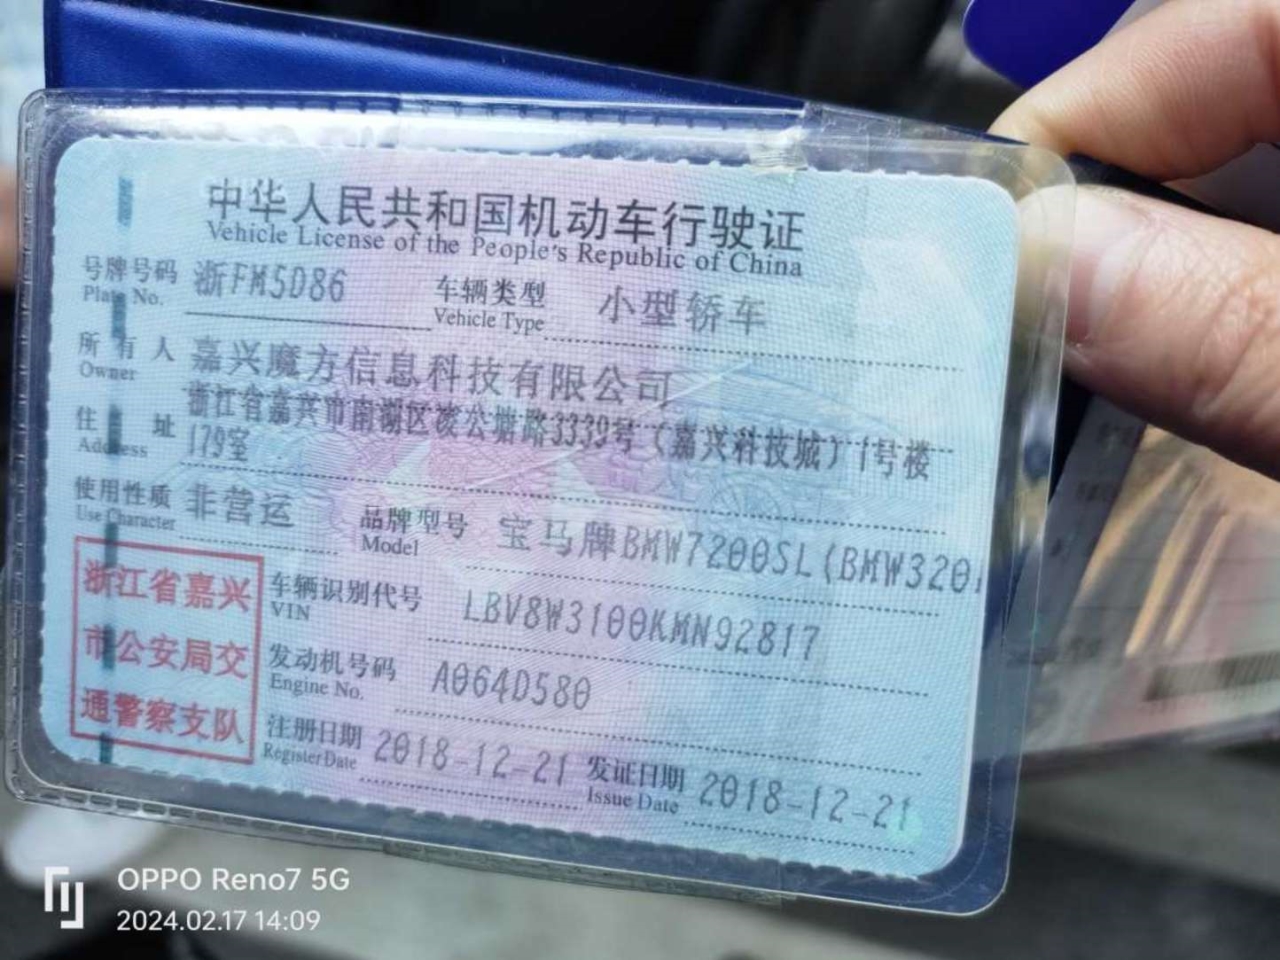 中华人民共和国机动车行驶证
Vehicle License of the People's Republic of China
号牌号码 浙FM5D86 车辆类型 小型轿车
Plate No. Vehicle Type
所有人 嘉兴魔方信息科技有限公司
Owner
住址 浙江省嘉兴市南湖区凌公塘路3339号（嘉兴科技城）1号楼
Address 179室
使用性质 非营运 品牌型号 宝马牌BMW7200SL(BMW320
Use Character Model
浙江省嘉兴
市公安局交
通警察支队
车辆识别代号 LBV8W3100KMN92817
VIN
发动机号码 A064D580
Engine No.
注册日期 2018-12-21 发证日期 2018-12-21
Register Date Issue Date
OPPO Reno7 5G
2024.02.17 14:09